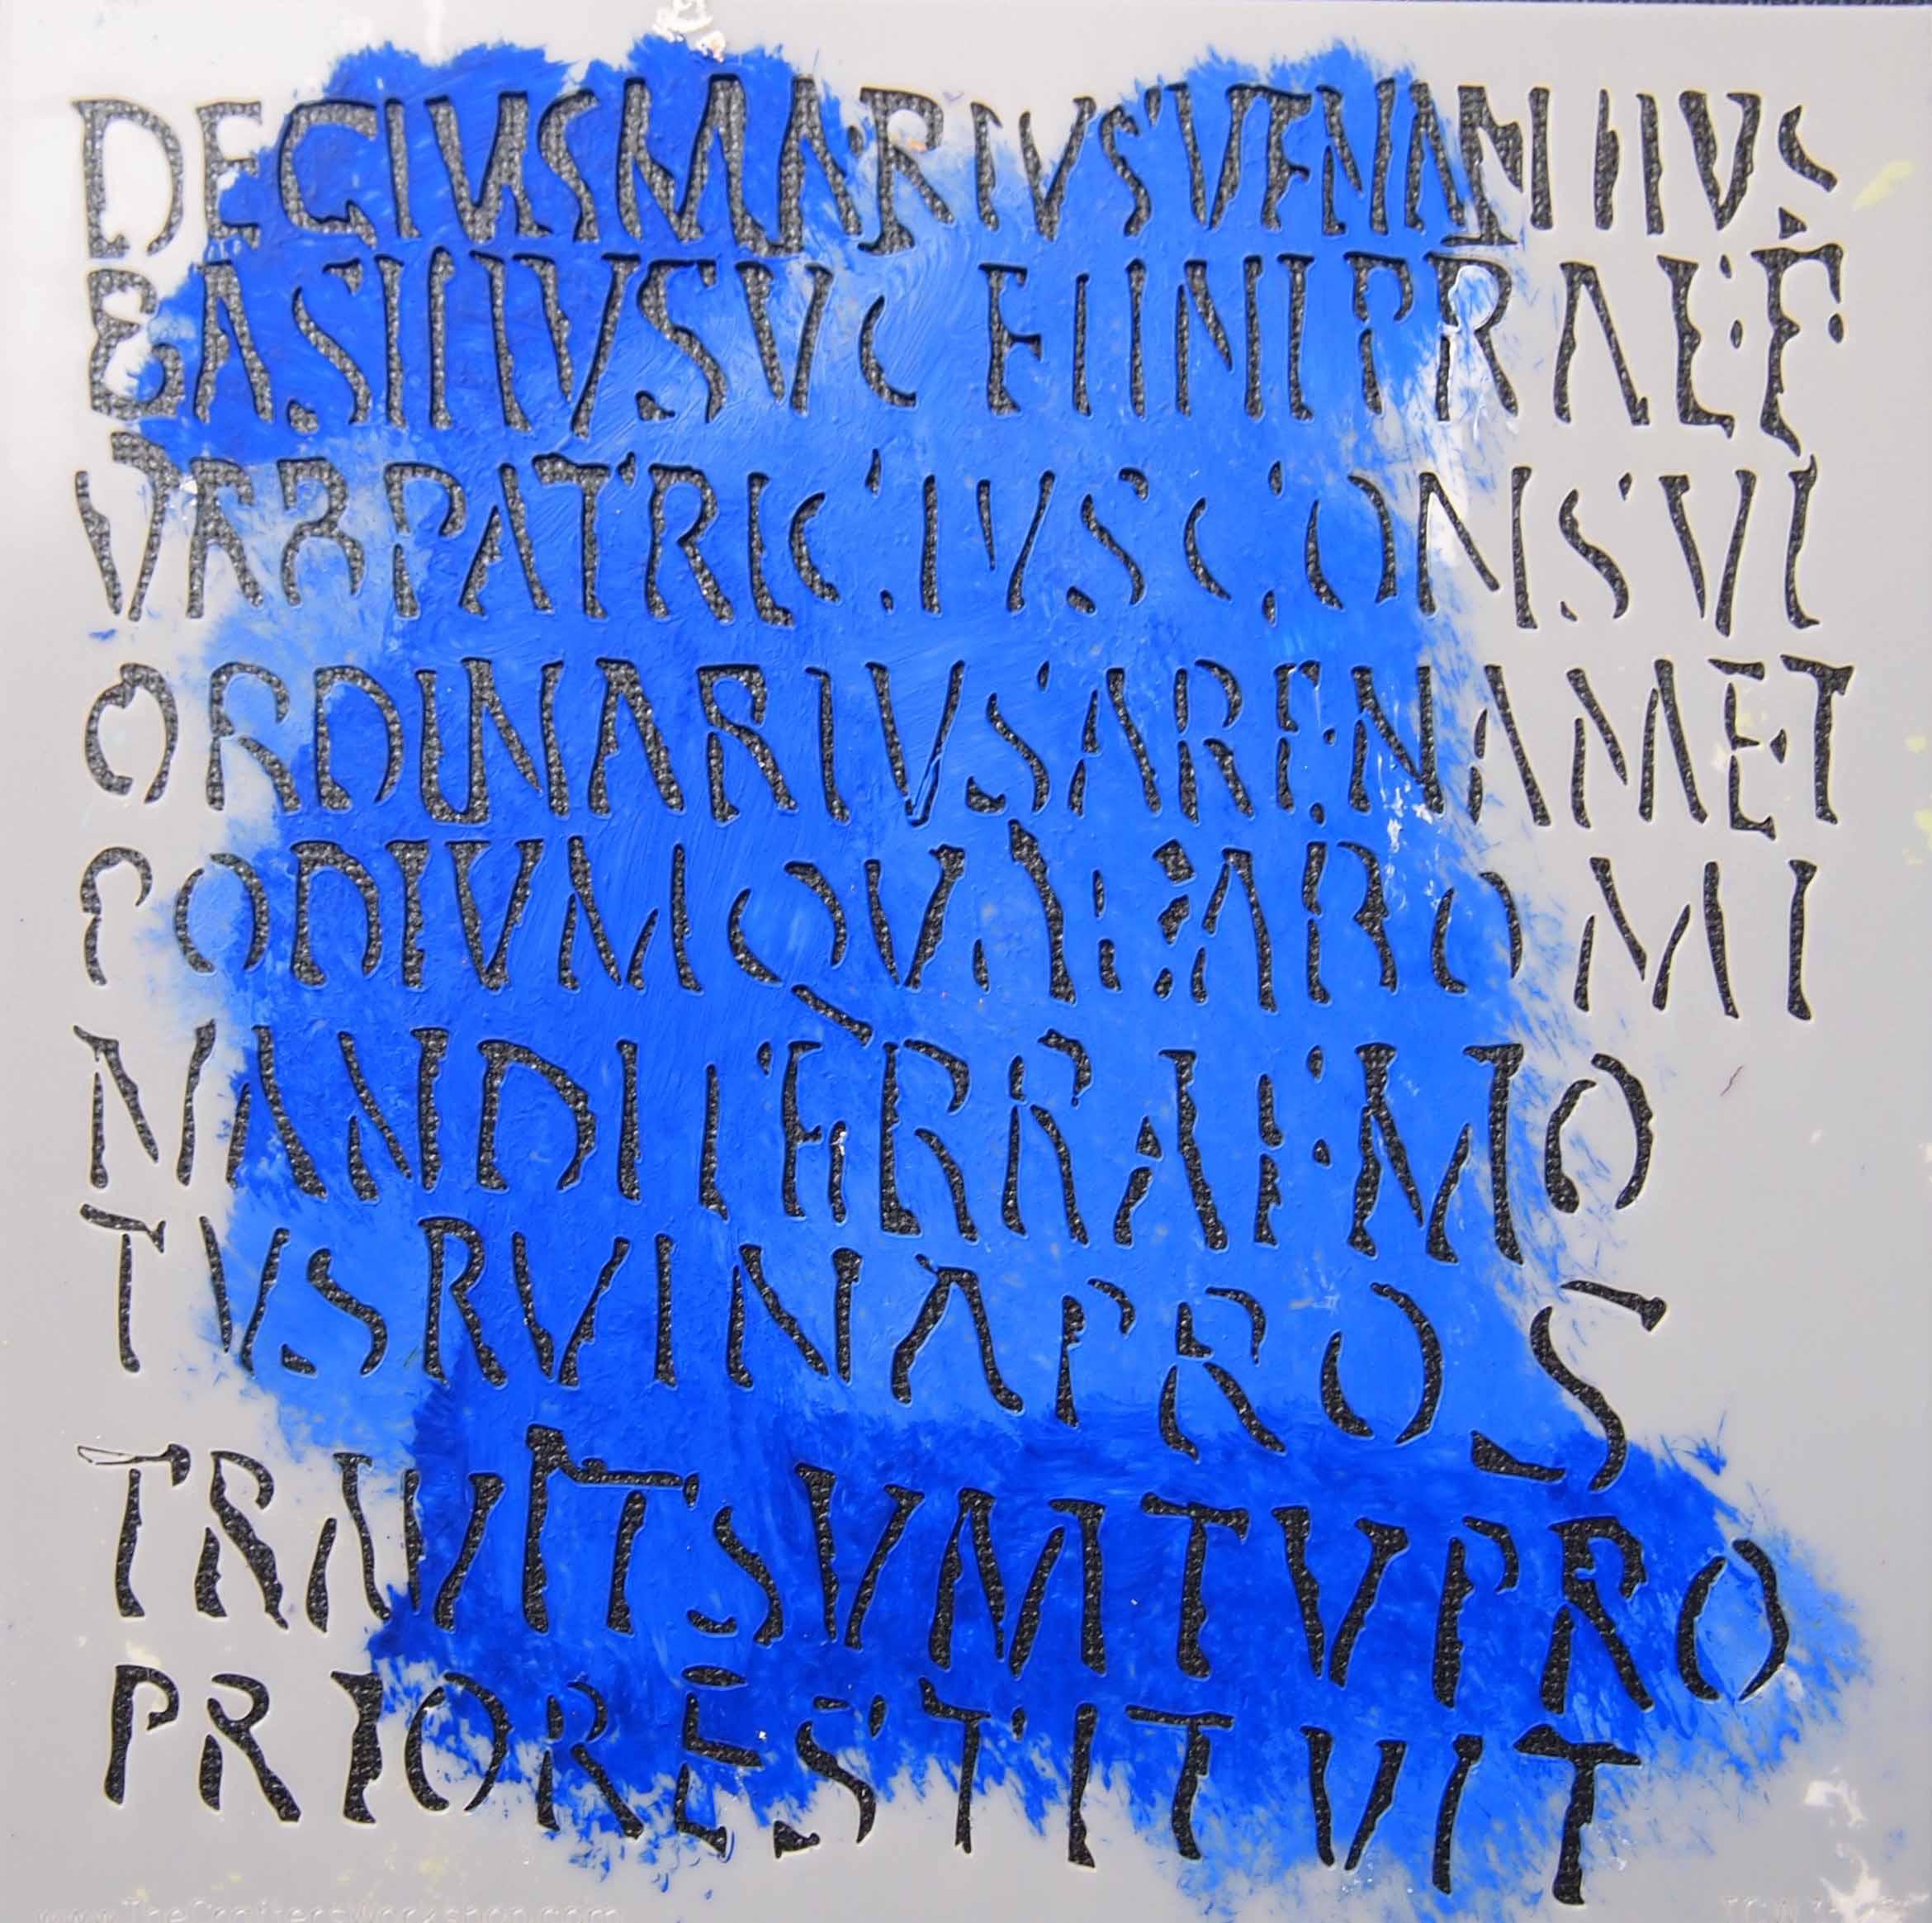 DECIVSMARIVSVENANTIVS
BASILIVSVCETINLPRAEF
VRBPATRICIVSCONSVL
ORDINARIVSARENAMET
PODIVMQVAEABOMI
NANDITERRAEMO
TVSRVINAPROS
TRAVITSVMTVPRO
PRIORESTITVIT
www.TheCraftersWorkshop.com